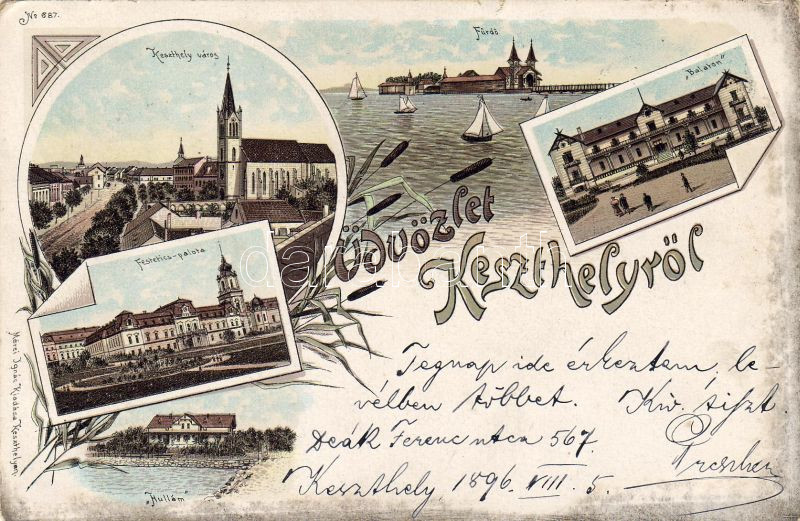 No 687.
Keszthely város
Fürdö
„Balaton"
Üdvözlet
Keszthelyröl
Festetics-palota
„Hullám"
Mérei Ignác Kiadása Keszthelyen
Tegnap ide érkeztem, le-
vélben többet. Kiv. tiszt.
Deák Ferenc utca 567.
Keszthely, 1896. VIII. 5.